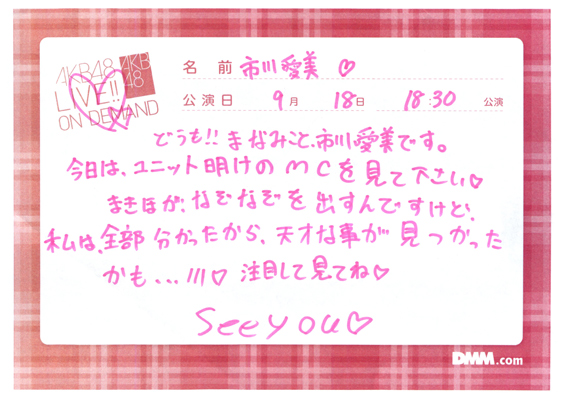 AKB48
LIVE!!
ON DEMAND
AKB
48
名 前 市川愛美 ♡
公演日 9月 18日 18:30 公演
どうも!! まなみこと、市川愛美です。
今日は、ユニット明けのmcを見て下さい♡
まきほが、なぞなぞを出すんですけど、
私は、全部分かったから、天才な事が見つかった
かも...///♡ 注目して見てね♡
See you♡
DMM.com